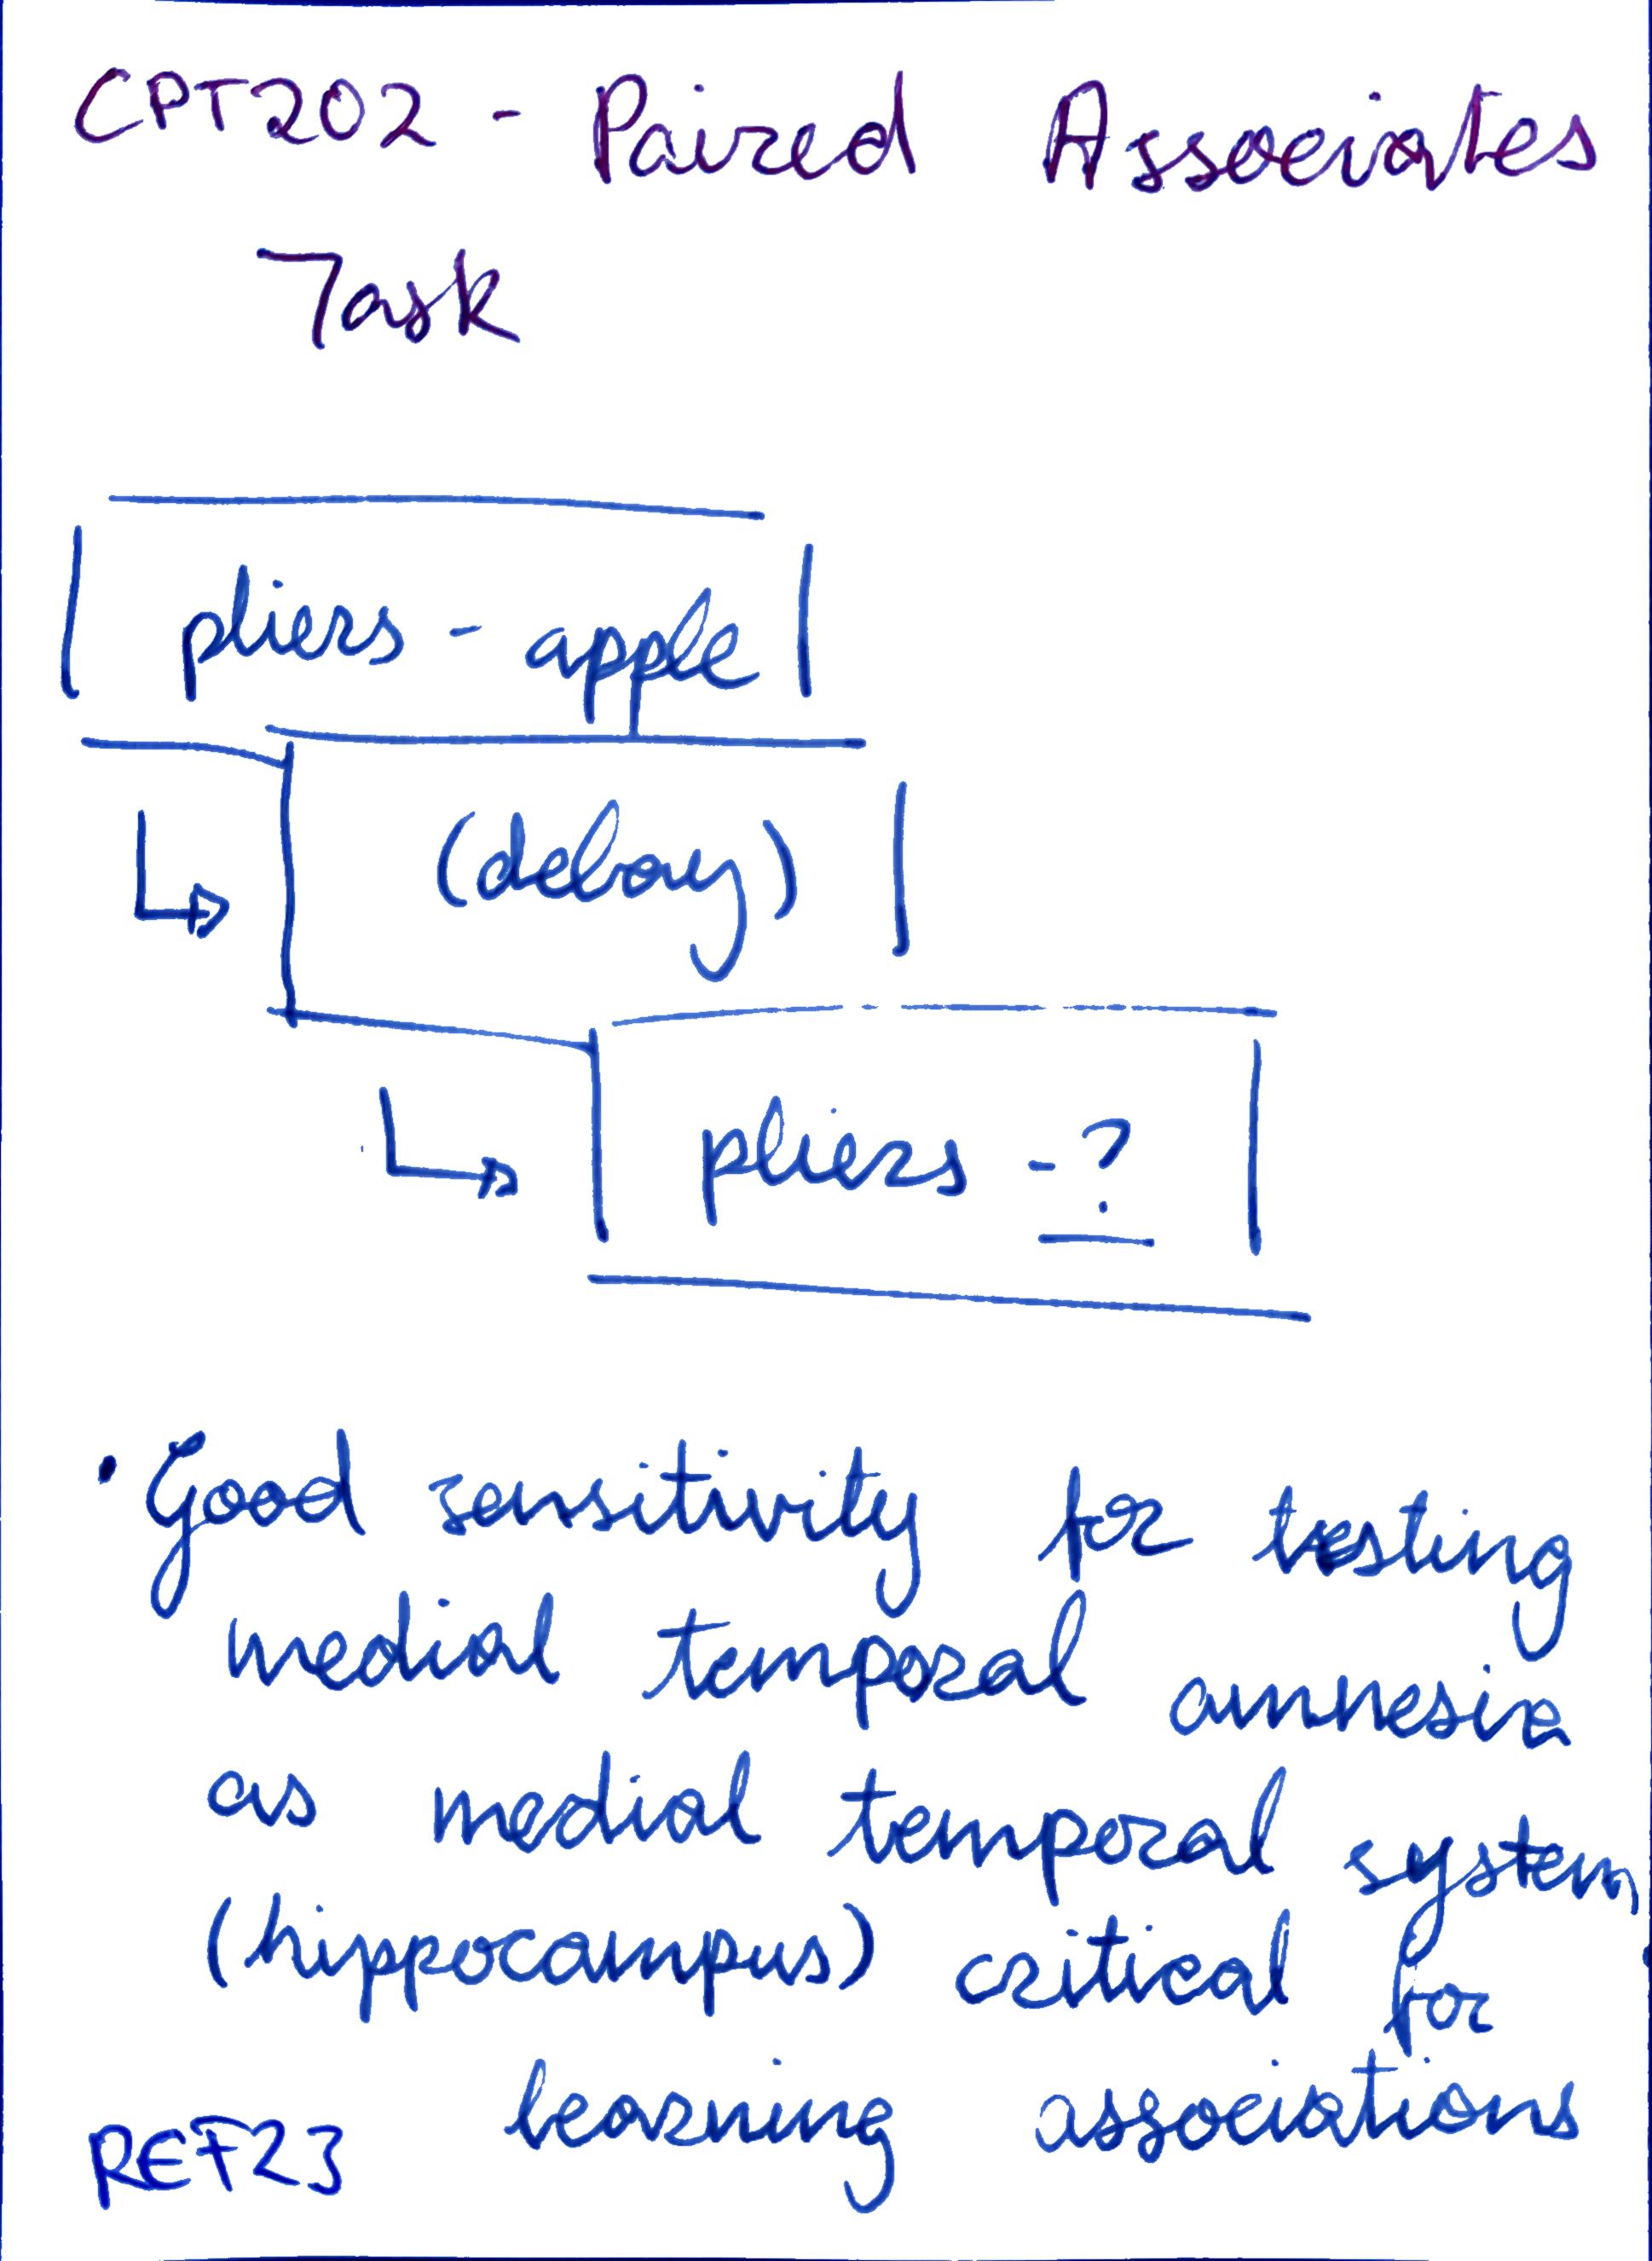 CPT202 - Paired Associates
Task
pliers - apple
(delay)
pliers - ?
• Good sensitivity for testing
medial temporal amnesia
as medial temporal system
(hippocampus) critical for
learning associations
REF23